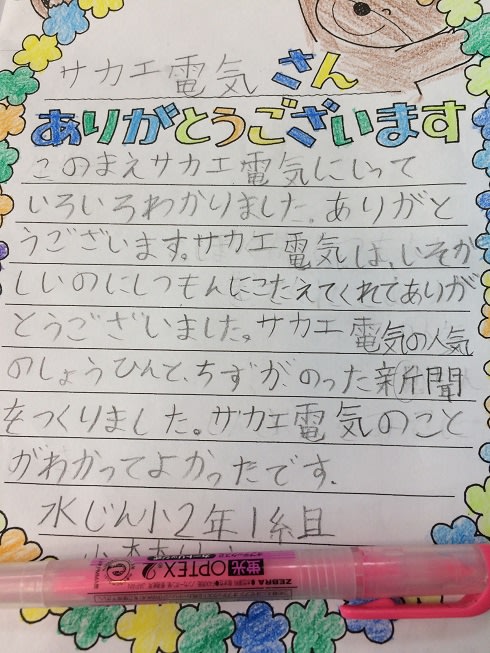 サカエ電気さん
ありがとうございます
このまえサカエ電気にいって
いろいろわかりました。ありがと
うございます。サカエ電気は、いそが
しいのにしつもんにこたえてくれてありが
とうございました。サカエ電気の人気
のしょうひんと、ちずが、のった新聞
をつくりました。サカエ電気のこと
がわかってよかったです.
水じん小2年1組
蛍光 OPTEX 2
ZEBRA